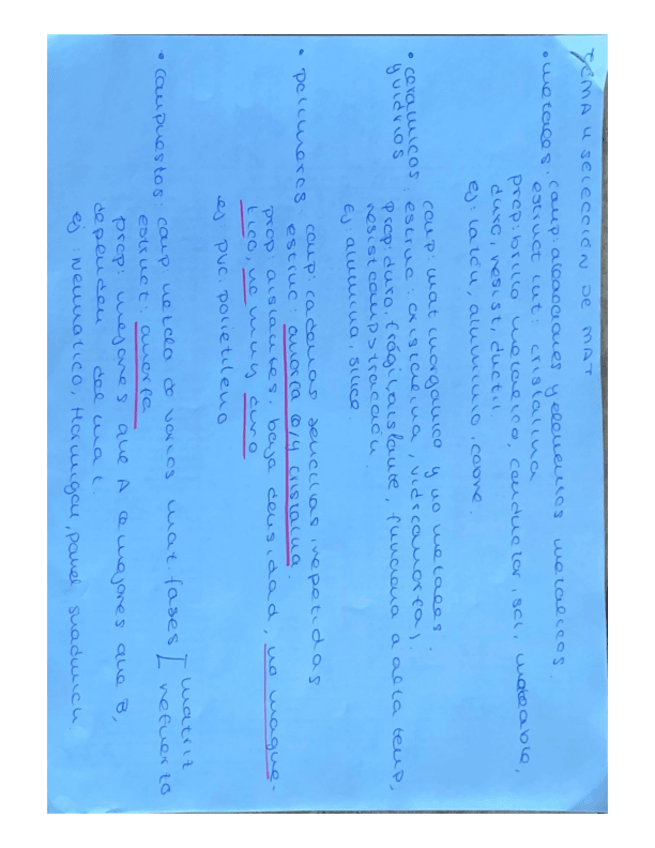 TEMA 4 SELECCIÓN DE MAT
• metales: comp: aleaciones y elementos metálicos.
estruct int: cristalina
prop: brillo metálico, conductor, sol, maleable,
duro, resist, ductil.
ej: latón, aluminio, cobre.
• cerámicos: comp: mat inorgánico y no metales.
y vidrios estruc: cristalina, vidrio (amorfa).
prop: duro, frágil, aislante, funciona a alta temp,
resist comp > tracción
Ej: alumina, silice
• polimeros: comp: cadenas sencillas repetidas
estruc: amorfa @/y cristalina.
prop: aislantes, baja densidad, no magne-
tico, no muy duro
ej pvc. polietileno
• compuestos: comp mezcla de varios mat. fases [ matriz
refuerzo
estruct: amorfa
prop: mejores que A o mejores que B,
dependen del mat.
ej: neumático, Hormigon, panel sandwich